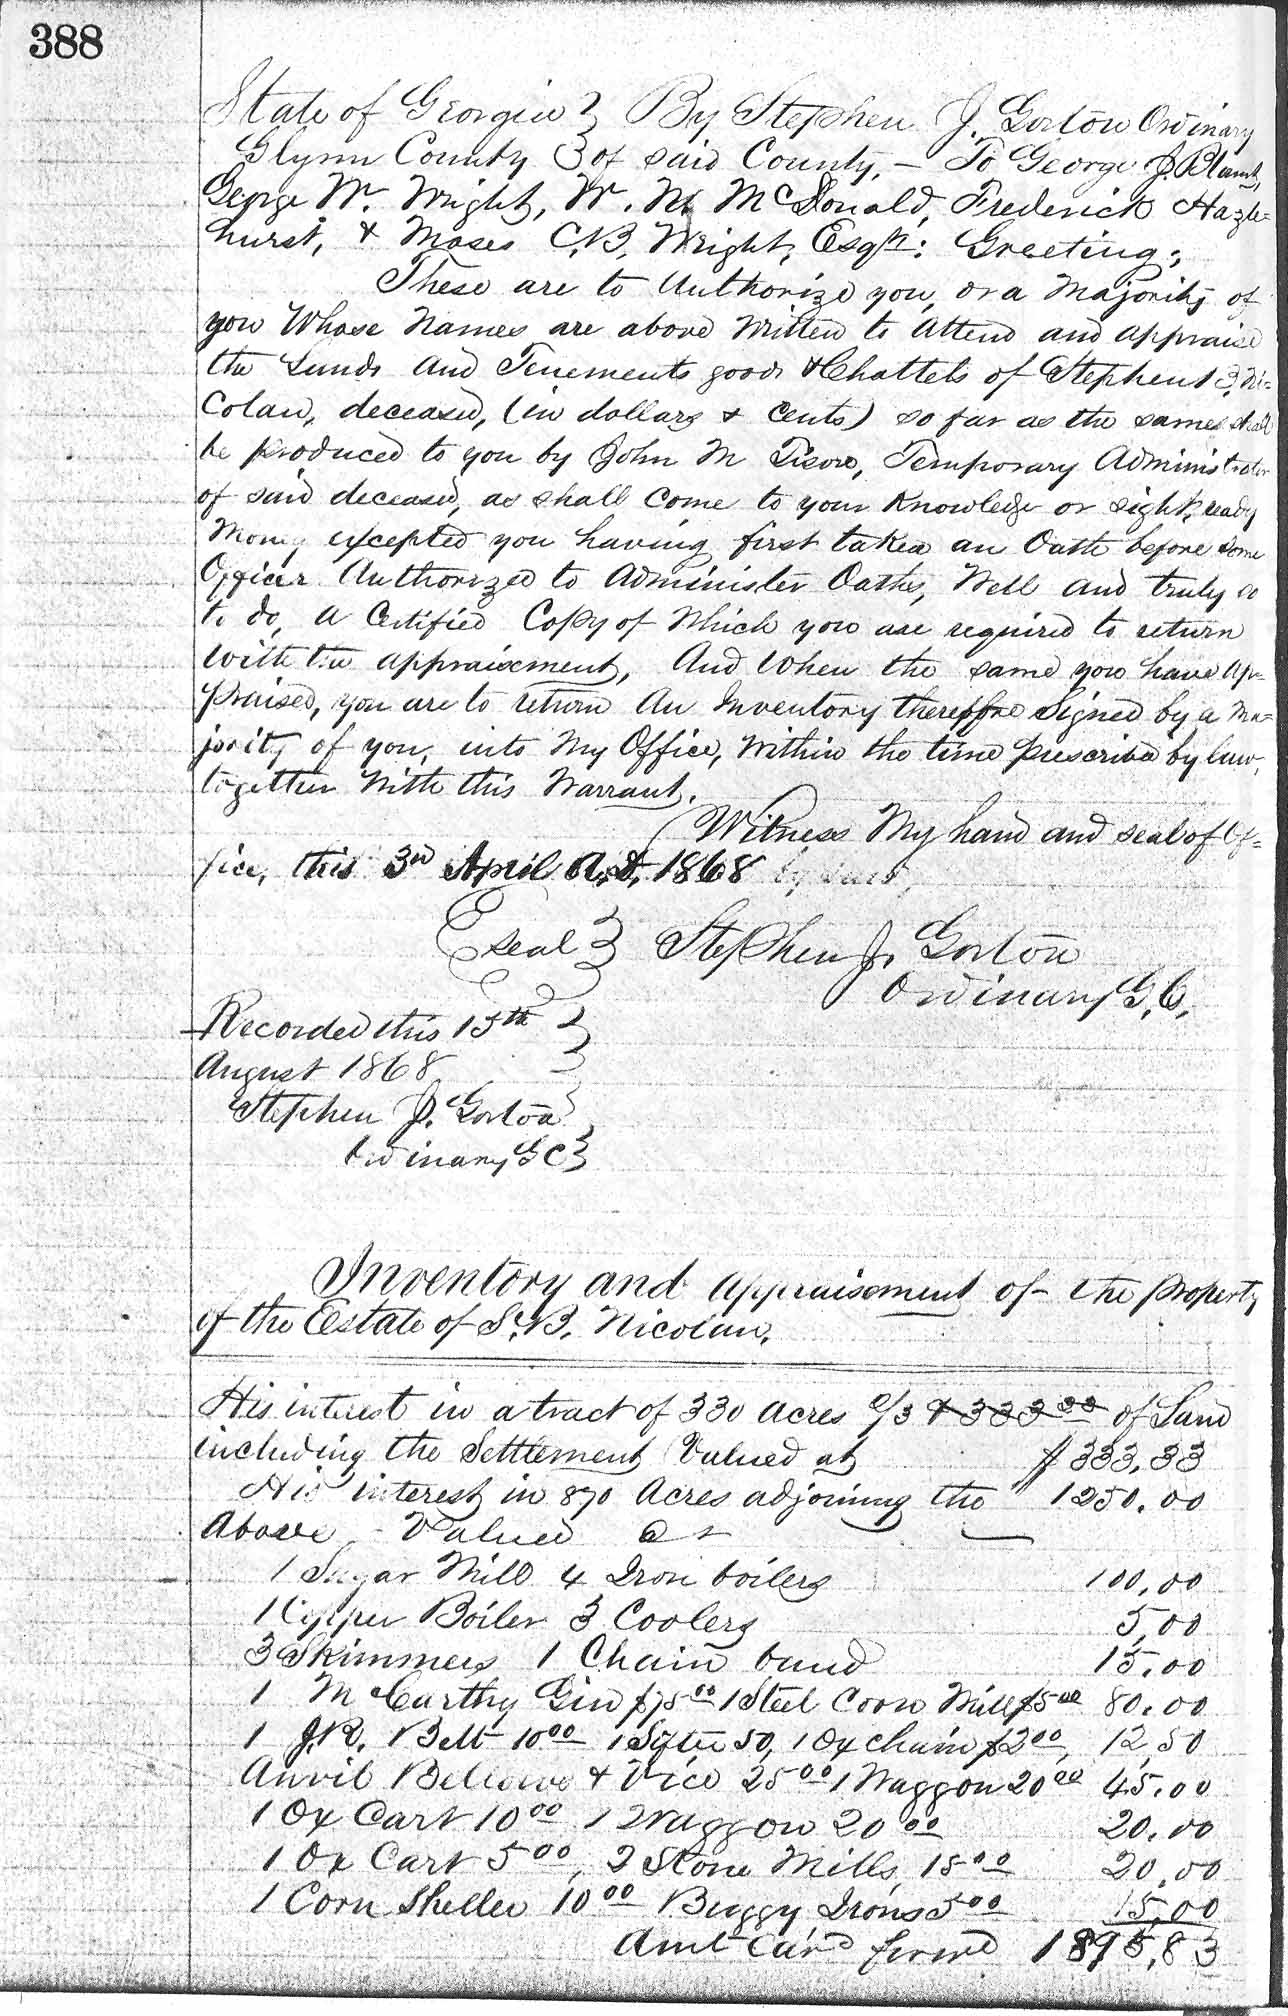 388
State of Georgia } By Stephen J. Gorton Ordinary
Glynn County } of said County, – To George J. Blount,
George W. Wright, W. M. McDonald, Frederick Hazle=
hurst, & Moses C.B. Wright, Esqr: Greeting;
These are to Authorize you, or a Majority of
you Whose Names are above Written to Attend and appraise
the Lands and Tenements goods & Chattels of Stephen B. Ni=
colau, deceased, (in dollars & cents) so far as the same shall
be produced to you by John M Tison, Temporary Administrator
of said deceased, as shall come to your Knowledge or sight, ready
Money excepted you having first taken an Oath before some
Officer Authorized to Administer Oaths, Well and truly so
to do, a Certified Copy of Which you are required to return
With the appraisement, And When the same you have ap=
praised, you are to return An Inventory thereffore Signed by a Ma=
jority of you, into My Office, Within the time prescribed by law,
together With this Warrant.
Witness My hand and seal of Of=
fice, this 3rd April A.D. 1868
{seal} Stephen J. Gorton
Ordinary G.C.
Recorded this 15th }
August 1868 }
Stephen J. Gorton }
Ordinary G C }
Inventory and Appraisement of the Property
of the Estate of S. B. Nicolau.
His interest in a tract of 330 Acres 0/3 & 333 33 of Land
including the Settlement Valued at $333.33
His interest in 870 Acres adjoining the 1250.00
Above – Valued at —
1 Sugar Mill 4 Iron boilers 100.00
1 Copper Boiler 3 Coolers 5,00
3 Skimmers 1 Chain band 15.00
1 McCarthy Gin $75 00 1 Steel Corn Mill $5 00 80.00
1 J.R. Belt 10 00 1 50, 1 Ox chain $2 00, 12,50
Anvil Bellows & Vice 25 00 1 Waggon 20 00 45.00
1 Ox Cart 10 00 1 Waggon 20 00 20.00
1 Ox Cart 5 00, 2 Stone Mills, 15 00 20.00
1 Corn Sheller 10 00 Buggy Irons 5 00 15,00
Amt Card forwd 1895,83